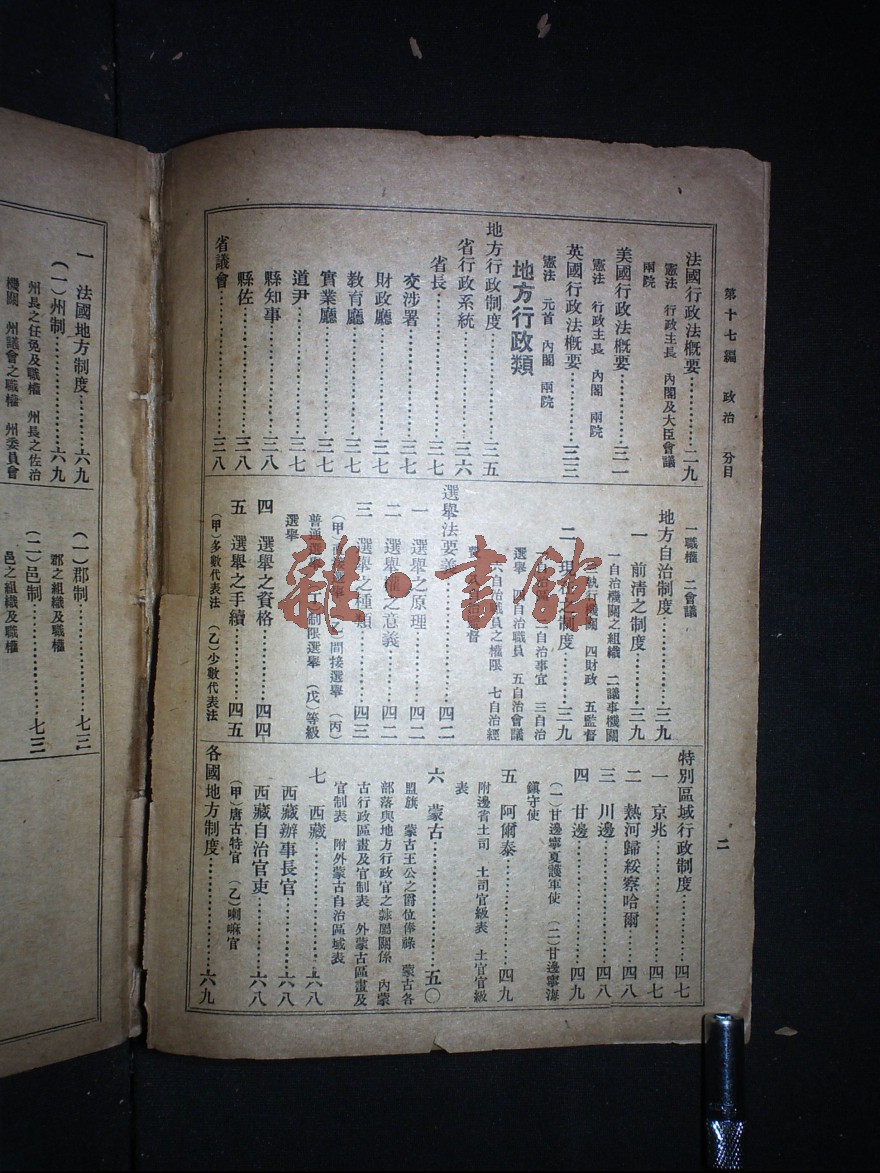 第十七編 政治 分目
二
法國行政法概要……二九
憲法 行政主長 內閣及大臣會議
兩院
美國行政法概要……三一
憲法 行政主長 內閣 兩院
英國行政法概要……三三
憲法 元首 內閣 兩院
地方行政類
地方行政制度……三五
省行政系統……三六
省長……三七
交涉署……三七
財政廳……三七
教育廳……三七
實業廳……三七
道尹……三七
縣知事……三八
縣佐……三八
省議會……三八
一職權 二會議
地方自治制度……三九
一 前清之制度……三九
一自治機關之組織 二議事機關
執行機關 四財政 五監督
二 現在之制度……三九
自治事宜 三自治
選舉 四自治職員 五自治會議
六自治職員之權限 七自治經
監督
選舉法要義……四二
一 選舉之原理……四二
二 選舉權之意義……四二
三 選舉之種類……四三
(甲)直接選舉 (乙)間接選舉 (丙)
普通選舉 (丁)制限選舉 (戊)等級
選舉
四 選舉之資格……四四
五 選舉之手續……四五
(甲)多數代表法 (乙)少數代表法
特別區域行政制度……四七
一 京兆……四七
二 熱河歸綏察哈爾……四八
三 川邊……四八
四 甘邊……四九
(一)甘邊寧夏護軍使 (二)甘邊寧海
鎮守使
五 阿爾泰……四九
附邊省土司 土司官級表 土官官級
表
六 蒙古……五〇
盟旗 蒙古王公之爵位俸祿 蒙古各
部落與地方行政官之隸屬關係 內蒙
古行政區畫及官制表 外蒙古區畫及
官制表 附外蒙古自治區域表
七 西藏……六八
西藏辦事長官……六八
西藏自治官吏……六八
(甲)唐古特官 (乙)喇嘛官
各國地方制度……六九
一 法國地方制度……六九
(一)州制……六九
州長之任免及職權 州長之佐治
機關 州議會之職權 州委員會
(一)郡制……七三
郡之組織及職權
(二)邑制……七三
邑之組織及職權
雜·書館